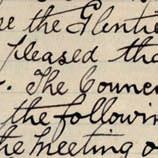 the Glentie
pleased tha
. The Counci
the followin
the meeting o